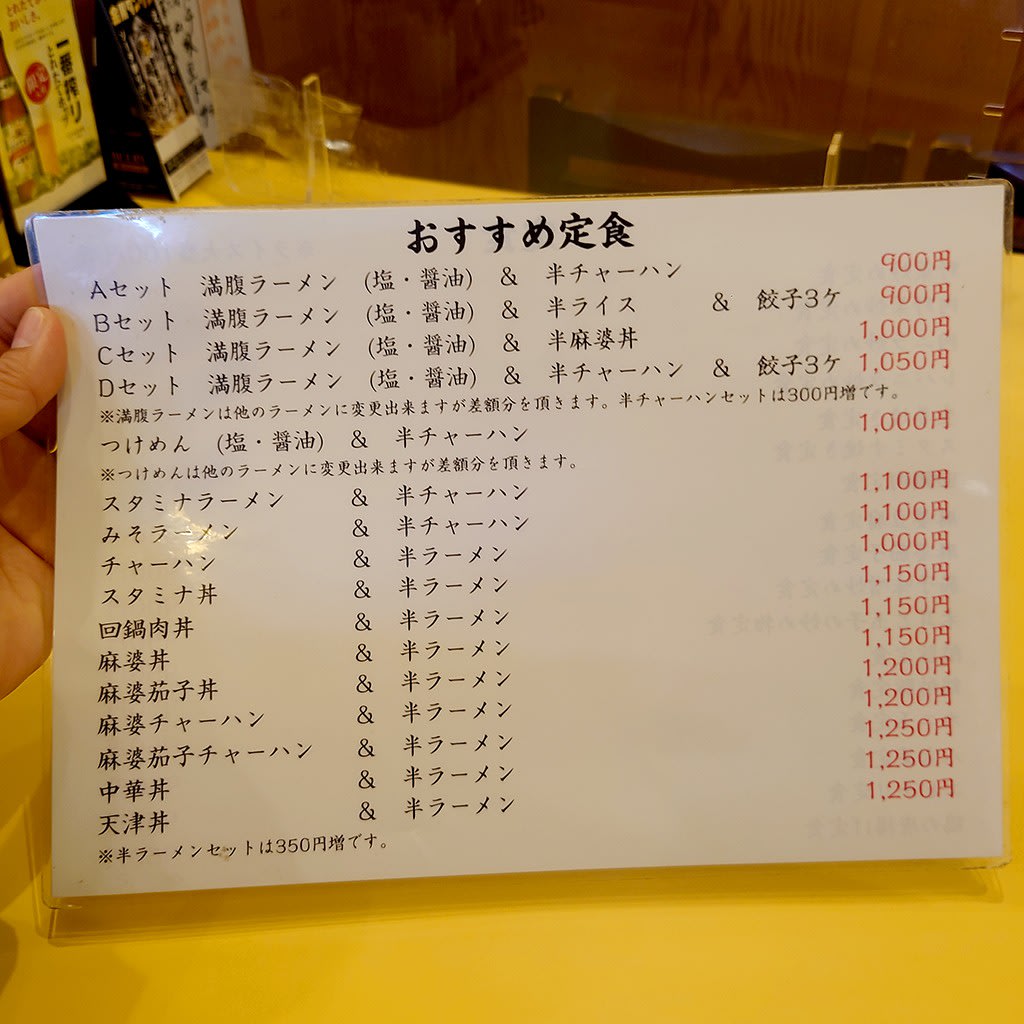 とれたてが
おいしさ。
一番搾り
とれたてホップ
おすすめ定食
Aセット 満腹ラーメン (塩・醤油) & 半チャーハン 900円
Bセット 満腹ラーメン (塩・醤油) & 半ライス & 餃子3ケ 900円
Cセット 満腹ラーメン (塩・醤油) & 半麻婆丼 1,000円
Dセット 満腹ラーメン (塩・醤油) & 半チャーハン & 餃子3ケ 1,050円
※満腹ラーメンは他のラーメンに変更出来ますが差額分を頂きます。半チャーハンセットは300円増です。
つけめん (塩・醤油) & 半チャーハン 1,000円
※つけめんは他のラーメンに変更出来ますが差額分を頂きます。
スタミナラーメン & 半チャーハン 1,100円
みそラーメン & 半チャーハン 1,100円
チャーハン & 半ラーメン 1,000円
スタミナ丼 & 半ラーメン 1,150円
回鍋肉丼 & 半ラーメン 1,150円
麻婆丼 & 半ラーメン 1,150円
麻婆茄子丼 & 半ラーメン 1,200円
麻婆チャーハン & 半ラーメン 1,200円
麻婆茄子チャーハン & 半ラーメン 1,250円
中華丼 & 半ラーメン 1,250円
天津丼 & 半ラーメン 1,250円
※半ラーメンセットは350円増です。